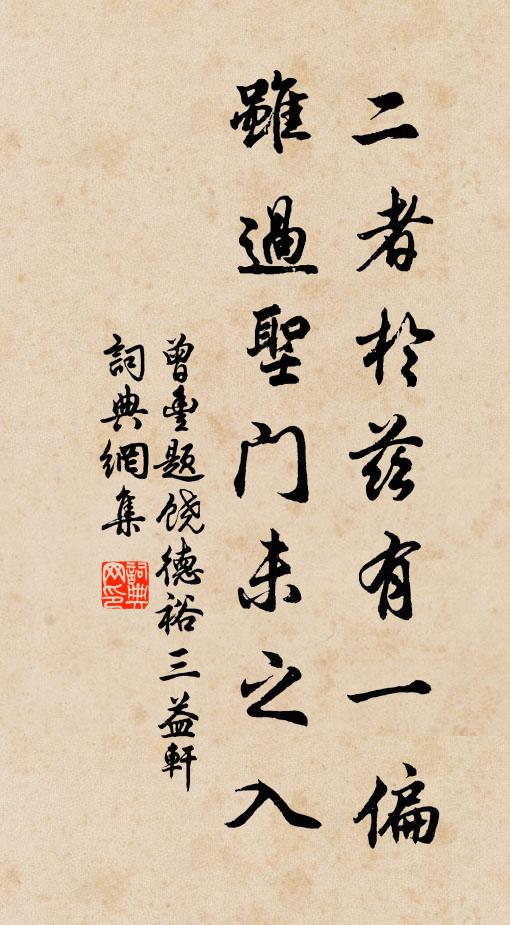 二者於茲有一偏
雖過聖門未之入
曾豊題饒德裕三益軒
詞典網集
詞典
网印